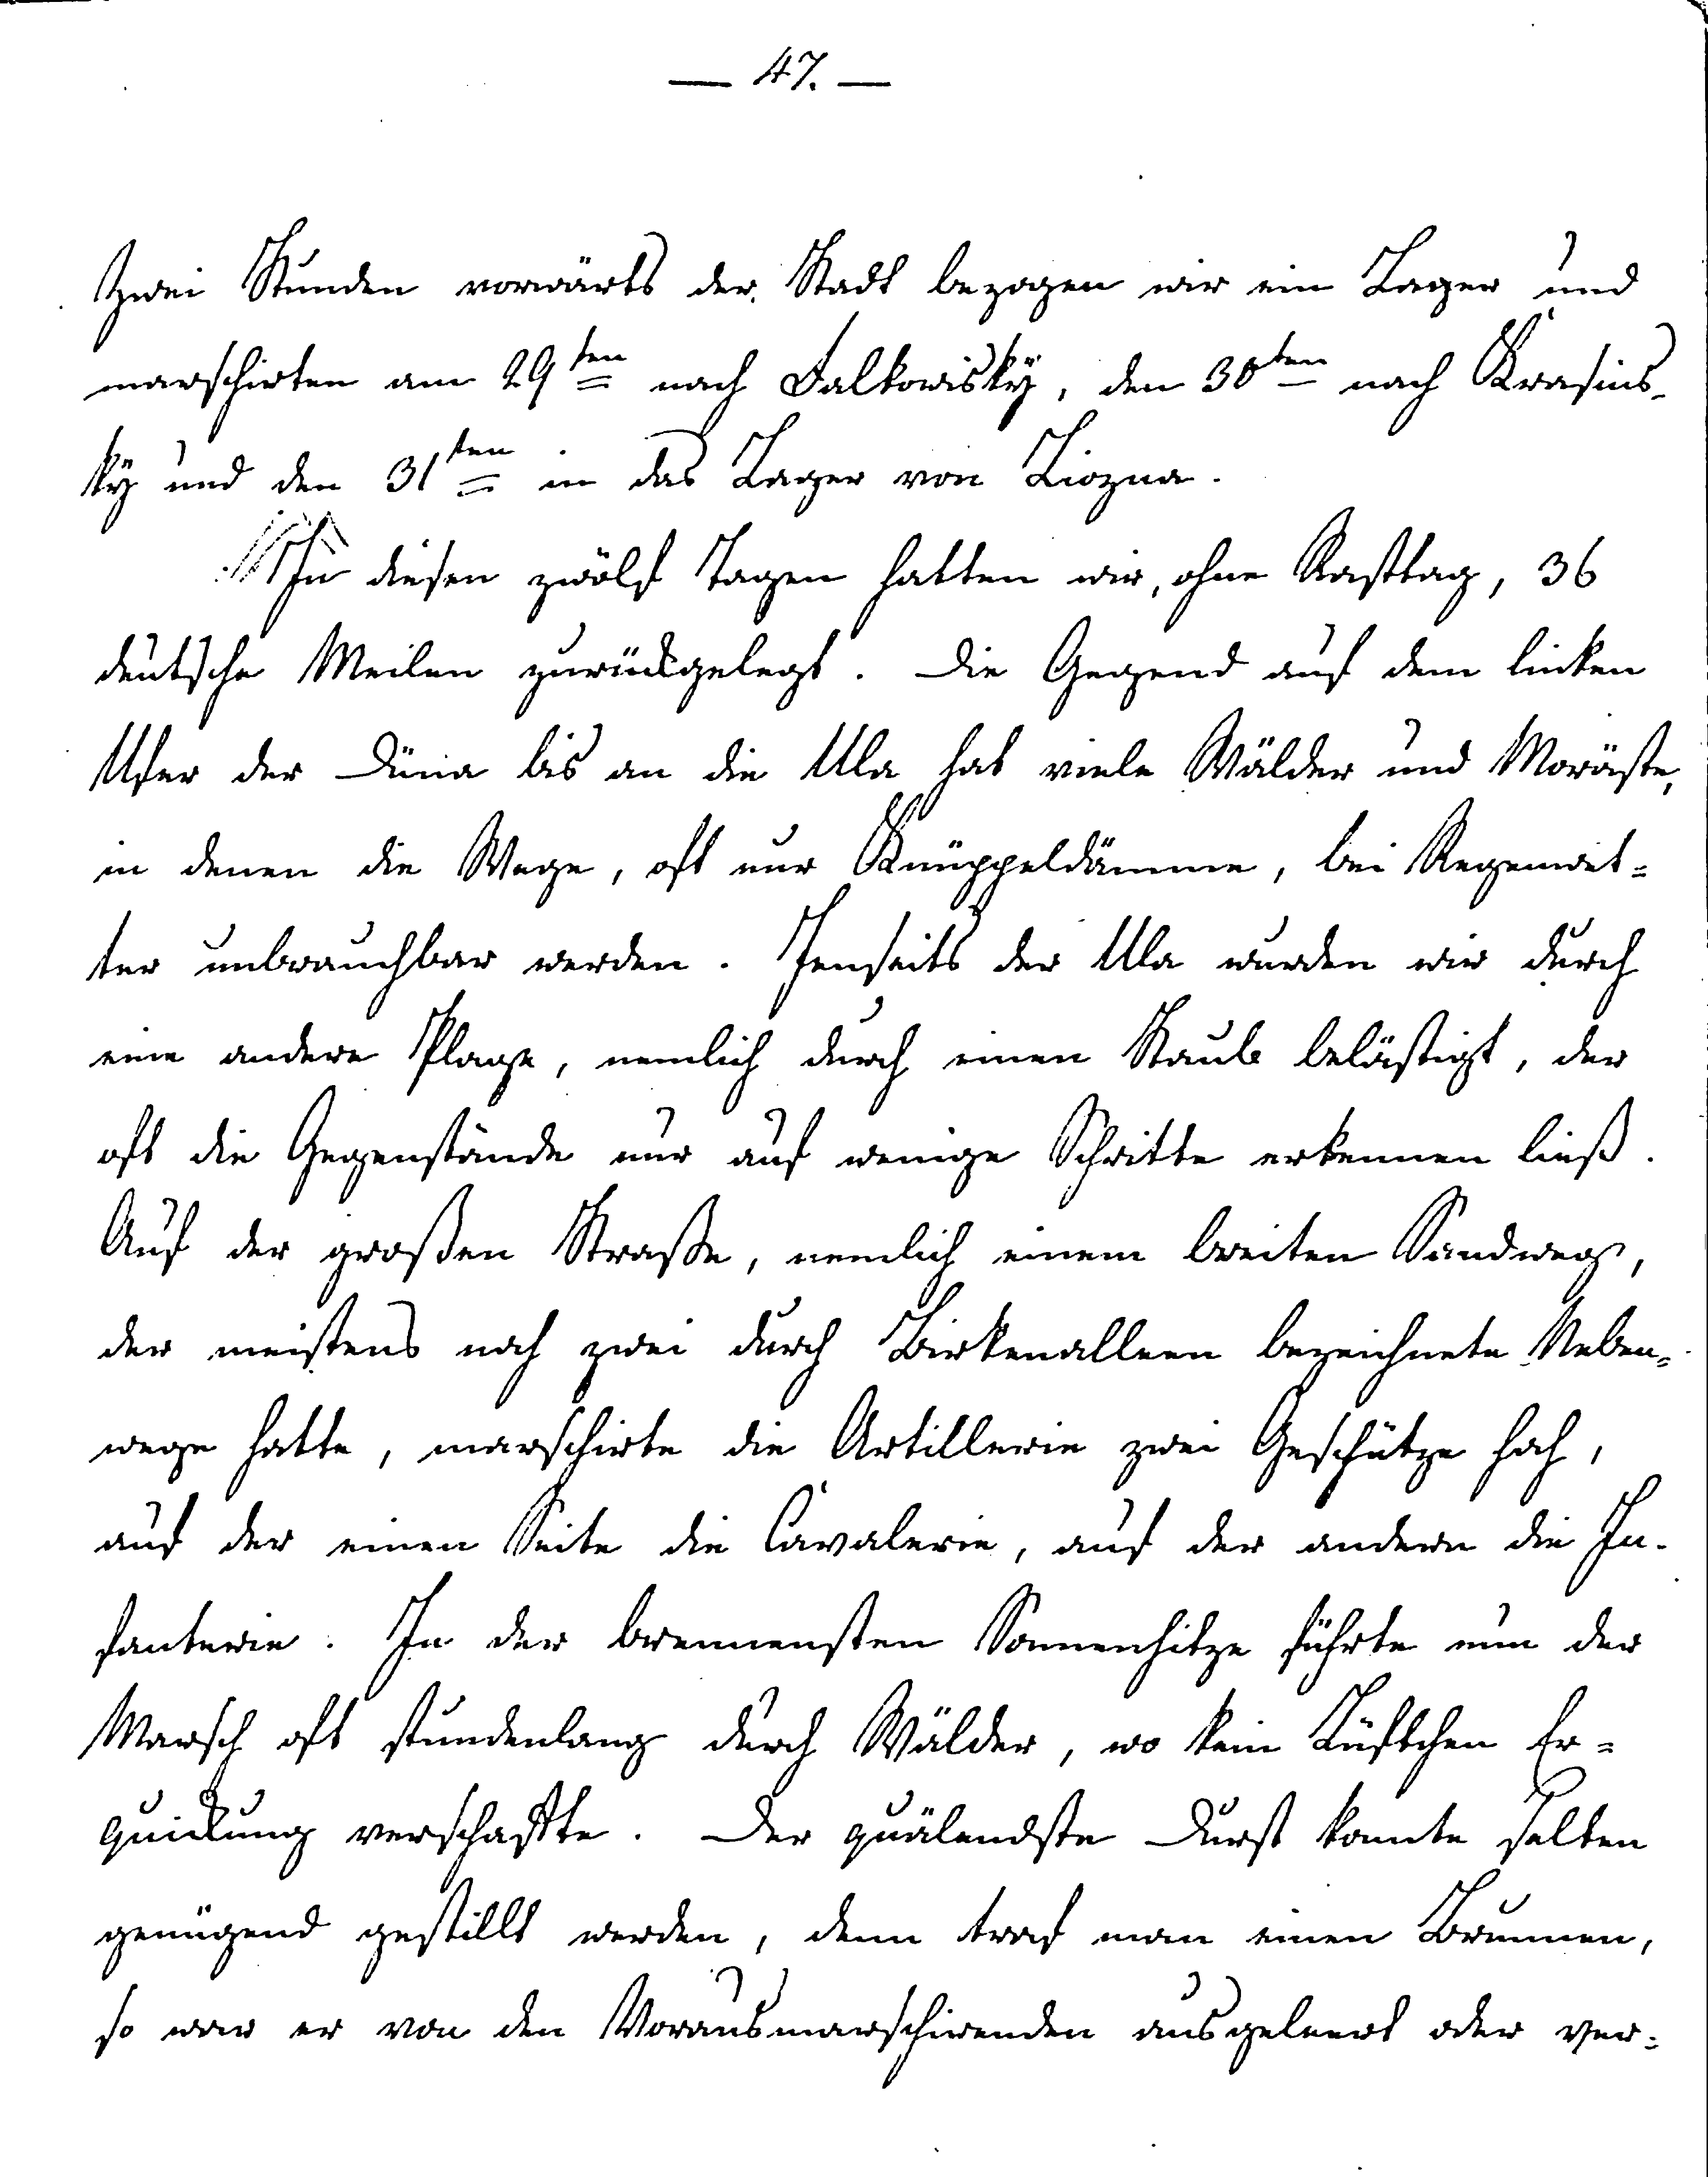 — 47. —
Zwei Stunden vorwärts der Stadt bezogen wir ein Lager und
marschirten am 29ten nach Falkowisky, den 30ten nach Krasins-
ky und den 31ten in das Lager von Liozna.
In diesen zwölf Tagen hatten wir, ohne Rasttag, 36
deutsche Meilen zurückgelegt. Die Gegend auf dem linken
Ufer der Düna bis an die Ula hat viele Wälder und Moräste,
in denen die Wege, oft nur Knüppeldämme, bei Regenwet=
ter unbrauchbar werden. Jenseits der Ula wurden wir durch
eine andere Plage, nemlich durch einen Staub belästigt, der
oft die Gegenstände nur auf wenige Schritte erkennen ließ.
Auf der großen Straße, nemlich einem breiten Sandweg,
der meistens noch zwei durch Birkenalleen bezeichnete Neben=
wege hatte, marschirte die Artillerie zwei Geschütze hoch,
auf der einen Seite die Cavalerie, auf der andern die In-
fanterie. In der brennensten Sonnenhitze führte nun der
Marsch oft stundenlang durch Wälder, wo kein Lüftchen Er=
quickung verschaffte. Der quälendste Durst konnte selten
genügend gestillt werden, denn traf man einen Brunnen,
so war er von den Vorausmarschirenden ausgeleert oder ver=